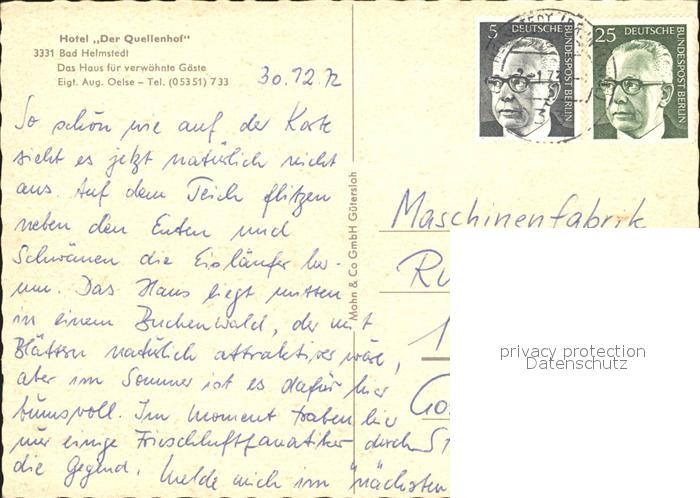 Hotel „Der Quellenhof"
3331 Bad Helmstedt
Das Haus für verwöhnte Gäste
Eigt. Aug. Oelse – Tel. (05351) 733
30.12.72
So schön wie auf der Karte
sieht es jetzt natürlich nicht
aus. Auf dem Teich flitzen
neben den Enten und
Schwänen die Eisläufer her-
um. Das Haus liegt mitten
in einem Buchenwald, der mit
Blättern natürlich attraktiver wäre,
aber im Sommer ist es dafür hier
bumsvoll. Im Moment traben hier
nur einige Frischluftfanatiker durch
die Gegend. Melde mich im "nächsten
Mohn & Co GmbH Gütersloh
5 DEUTSCHE BUNDESPOST BERLIN
25 DEUTSCHE BUNDESPOST BERLIN
Maschinenfabrik
privacy protection
Datenschutz